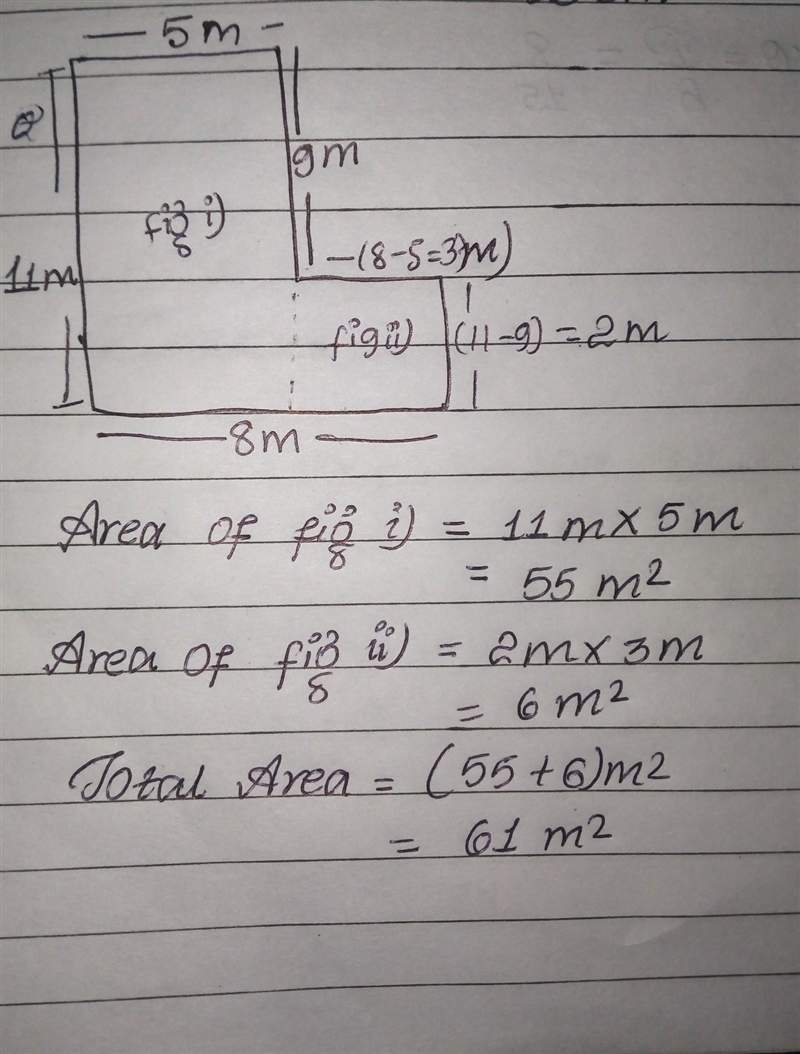 5m
9m
fig i)
(8-5=3)m)
11m
fig ii)
(11-9) = 2m
8m
Area of fig i) = 11m × 5m
= 55 m²
Area of fig ii) = 2m × 3m
= 6 m²
Total Area = (55+6)m²
= 61 m²